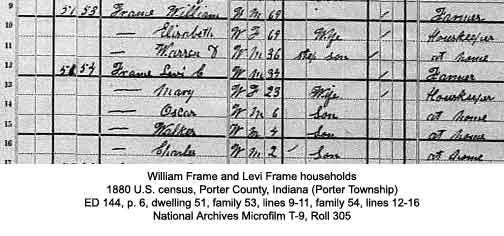 9 51 53 Frame William W M 69 / Farmer
10 — Elizabeth W F 69 Wife / Housekeeper
11 — Warren D W M 36 Step son / at home
12 51 54 Frame Levi C W M 34 / Farmer
13 — Mary W F 23 Wife / Housekeeper
14 — Oscar W M 6 Son at home
15 — Walker W M 4 Son at home
16 — Charles W M 2 / Son at home
William Frame and Levi Frame households
1880 U.S. census, Porter County, Indiana (Porter Township)
ED 144, p. 6, dwelling 51, family 53, lines 9-11, family 54, lines 12-16
National Archives Microfilm T-9, Roll 305